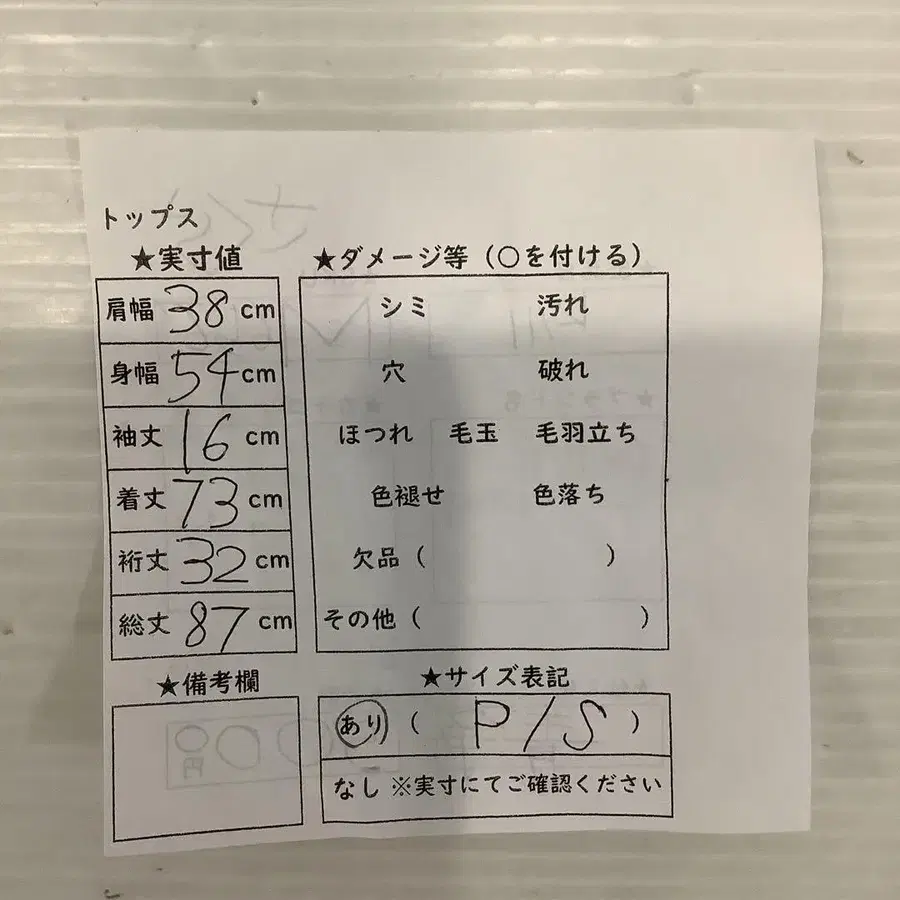 トップス
★実寸値
肩幅 38 cm
身幅 54 cm
袖丈 16 cm
着丈 73 cm
裄丈 32 cm
総丈 87 cm
★備考欄
★ダメージ等（○を付ける）
シミ 汚れ
穴 破れ
ほつれ 毛玉 毛羽立ち
色褪せ 色落ち
欠品（ ）
その他（ ）
★サイズ表記
あり（ P/S ）
なし ※実寸にてご確認ください